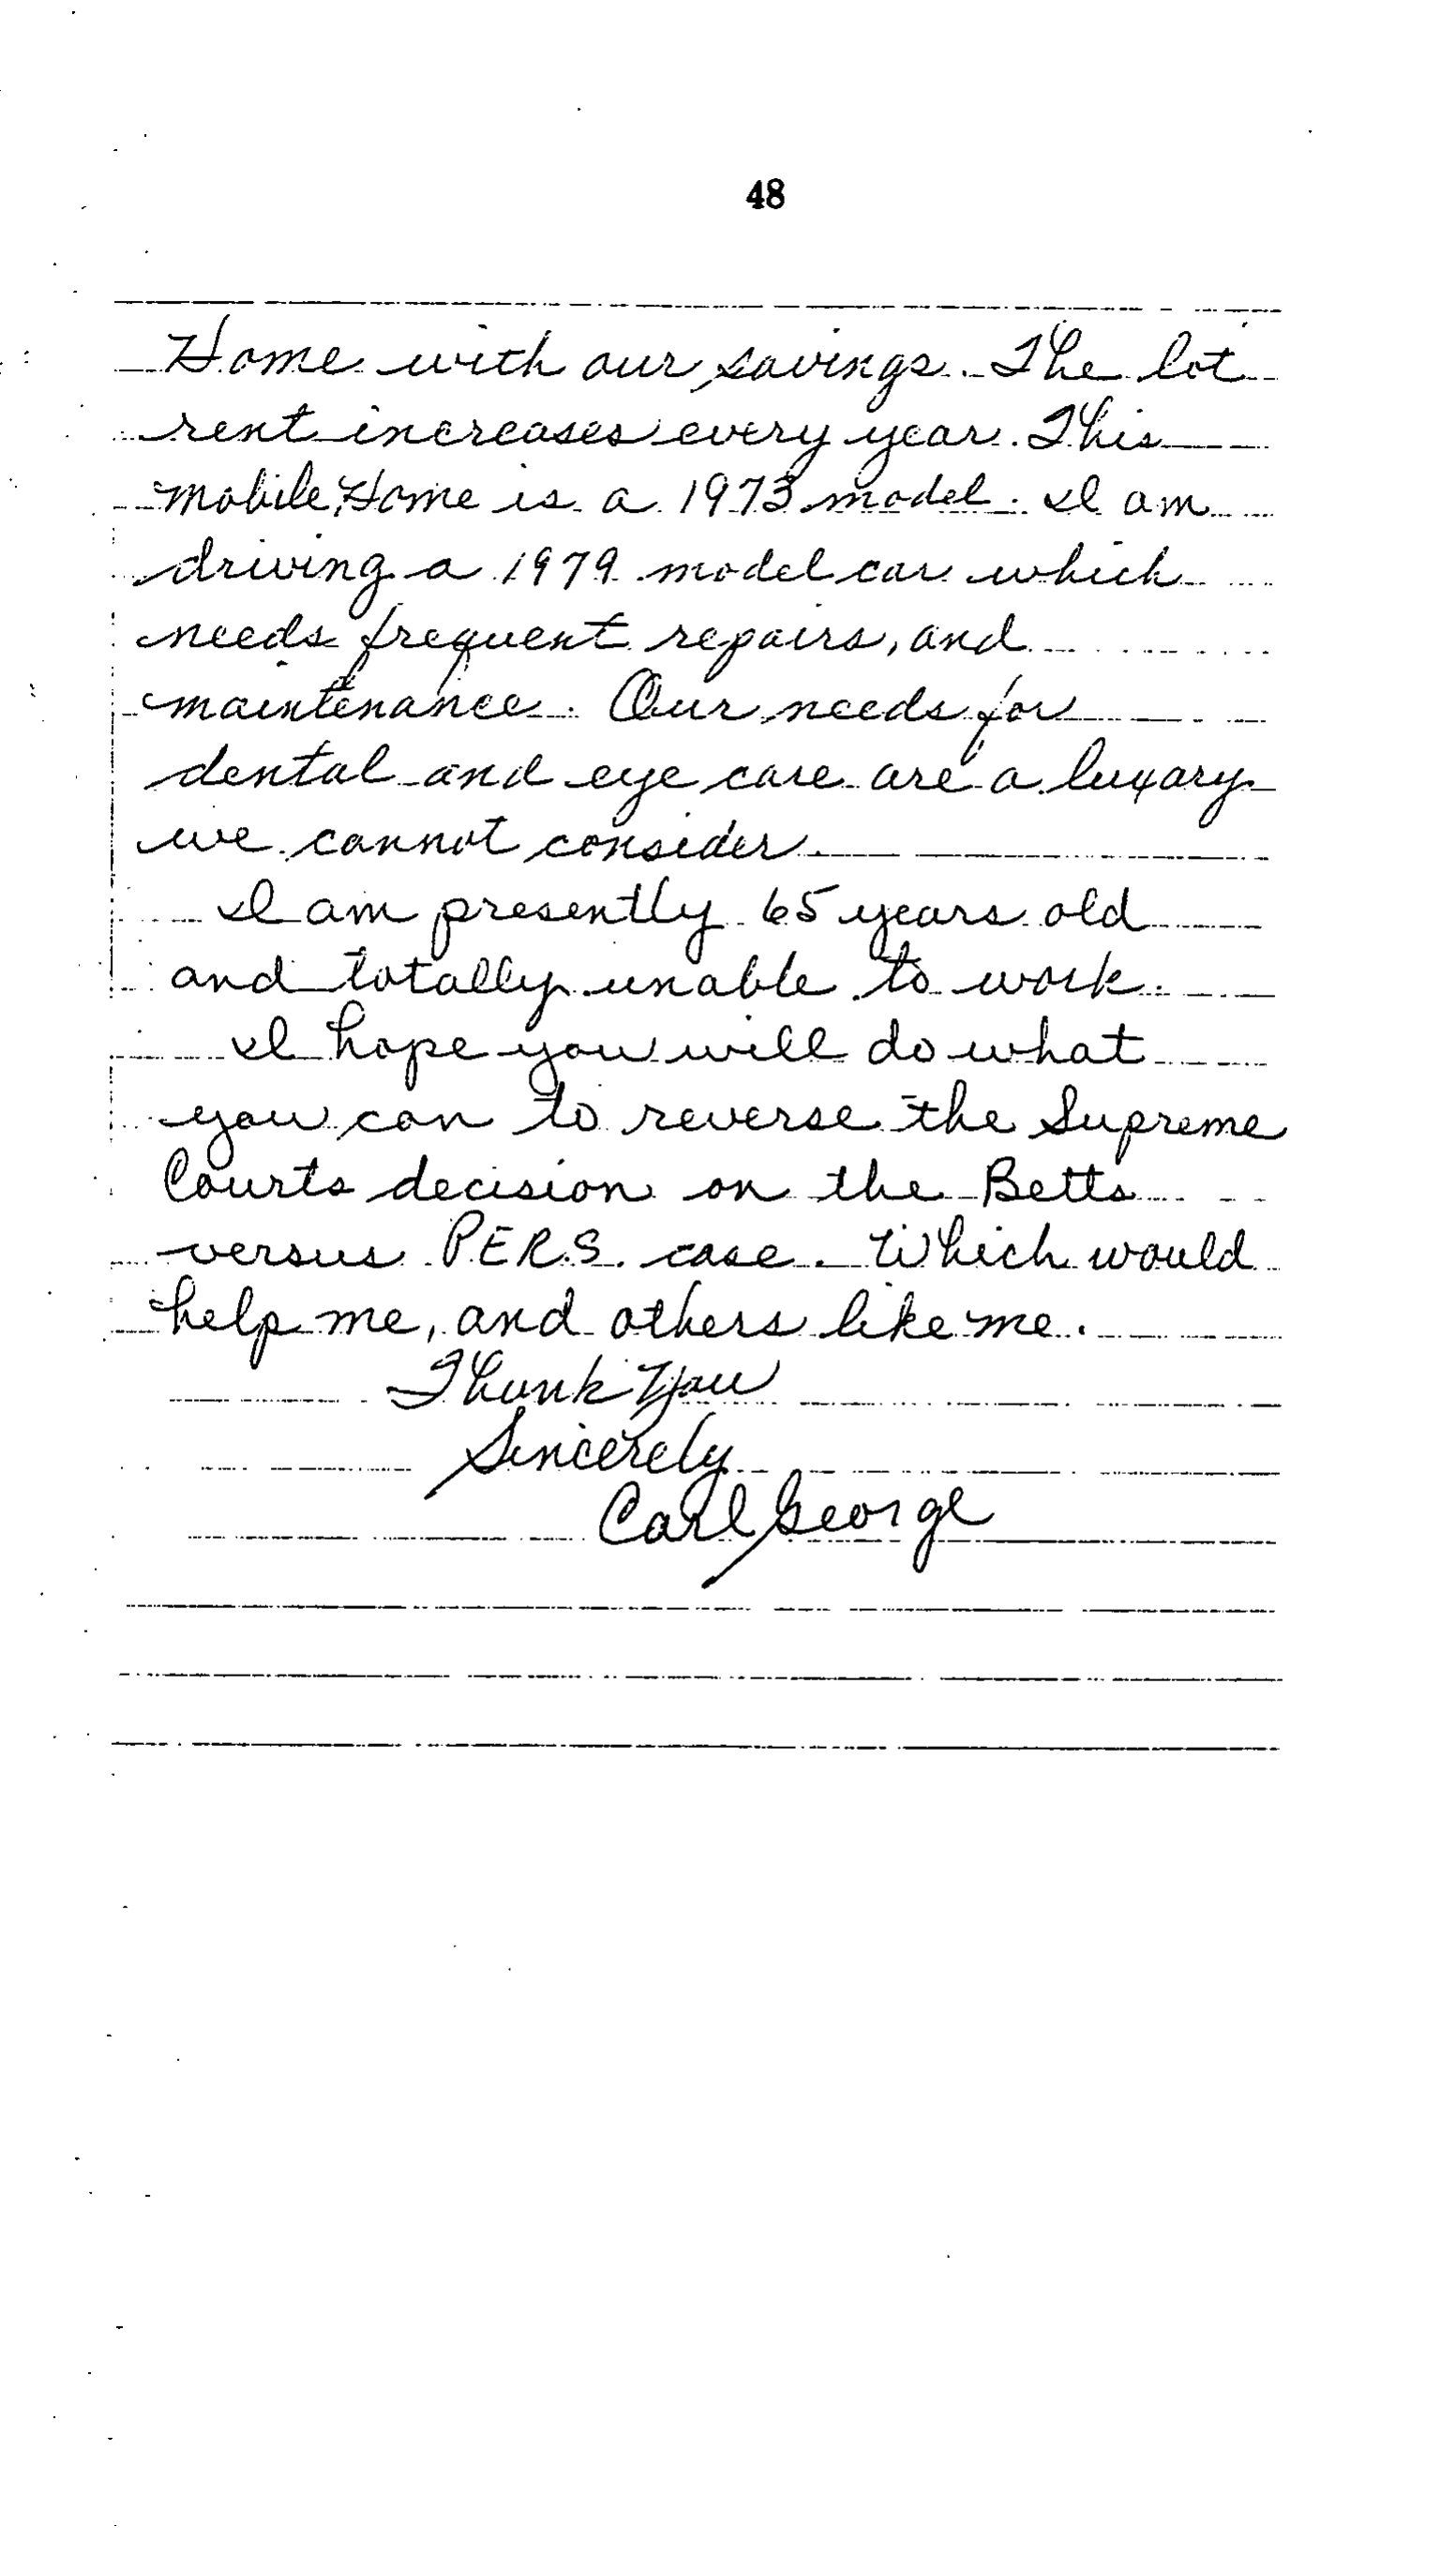 48
Home with our savings. The lot
rent increases every year. This
mobile Home is a 1973 model. I am
driving a 1979 model car which
needs frequent repairs, and
maintenance. Our needs for
dental and eye care are a luxary
we cannot consider.
I am presently 65 years old
and totally unable to work.
I hope you will do what
you can to reverse the Supreme
Courts decision on the Betts
versus P.E.R.S. case. Which would
help me, and others like me.
Thank You
Sincerely
Carl George